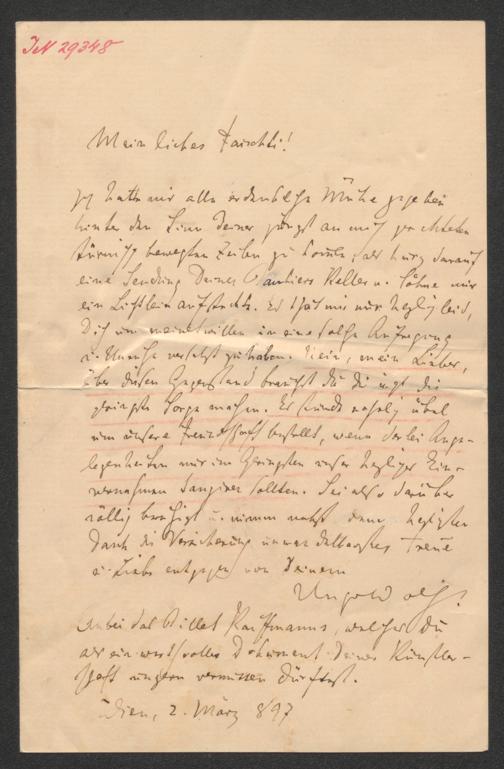 JN 29348
Mein liebes Faischti!
Ich hatte mir alle erdenkliche Mühe gegeben
hinter den Sinn Deiner jüngst an mich gerichteten
stürmisch bewegten Zeilen zu kommen, als kurz darauf
eine Sendung Deines Bankiers Keller u. Söhne mir
ein Lichtlein aufsteckte. Es thut mir nur herzlich leid,
Dich um meinetwillen in eine solche Aufregung
u. Unruhe versetzt zu haben. Nein, mein Lieber,
über diesen Gegenstand brauchst Du Dir nicht die
geringste Sorge machen. Es stünde wahrlich übel
um unsere Freundschaft bestellt, wenn derlei Ange-
legenheiten nur im Geringsten unser herzliches Ein-
vernehmen tangiren sollten. Sei also darüber
völlig beruhigt u. nimm nebst dem herzlichsten
Dank die Versicherung unwandelbarster Treue
u. Liebe entgegen von Deinem
Anbei das Billet Kauffmanns, welches Du
als ein werthvolles Dokument Deiner Künstler-
schaft ungern vermissen dürftest.
Wien, 2. März 897